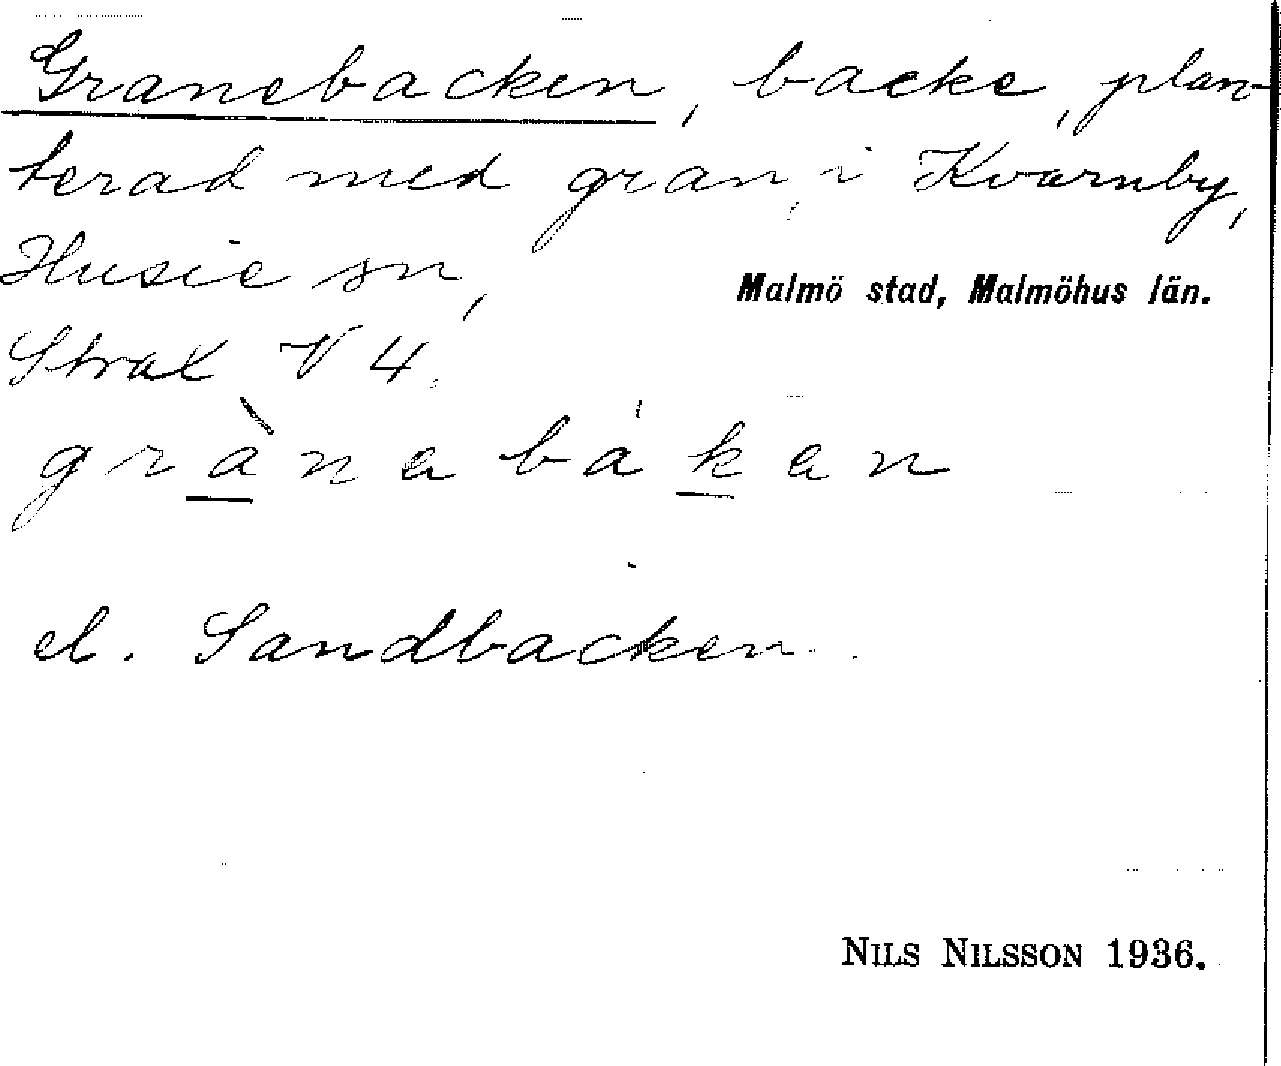 Granebacken, backe, plan-
terad med gran, i Kvarnby,
Husie sn,
Malmö stad, Malmöhus län.
Strax V 4.
grà̱nabáḵan
el. Sandbacken.
NILS NILSSON 1936.